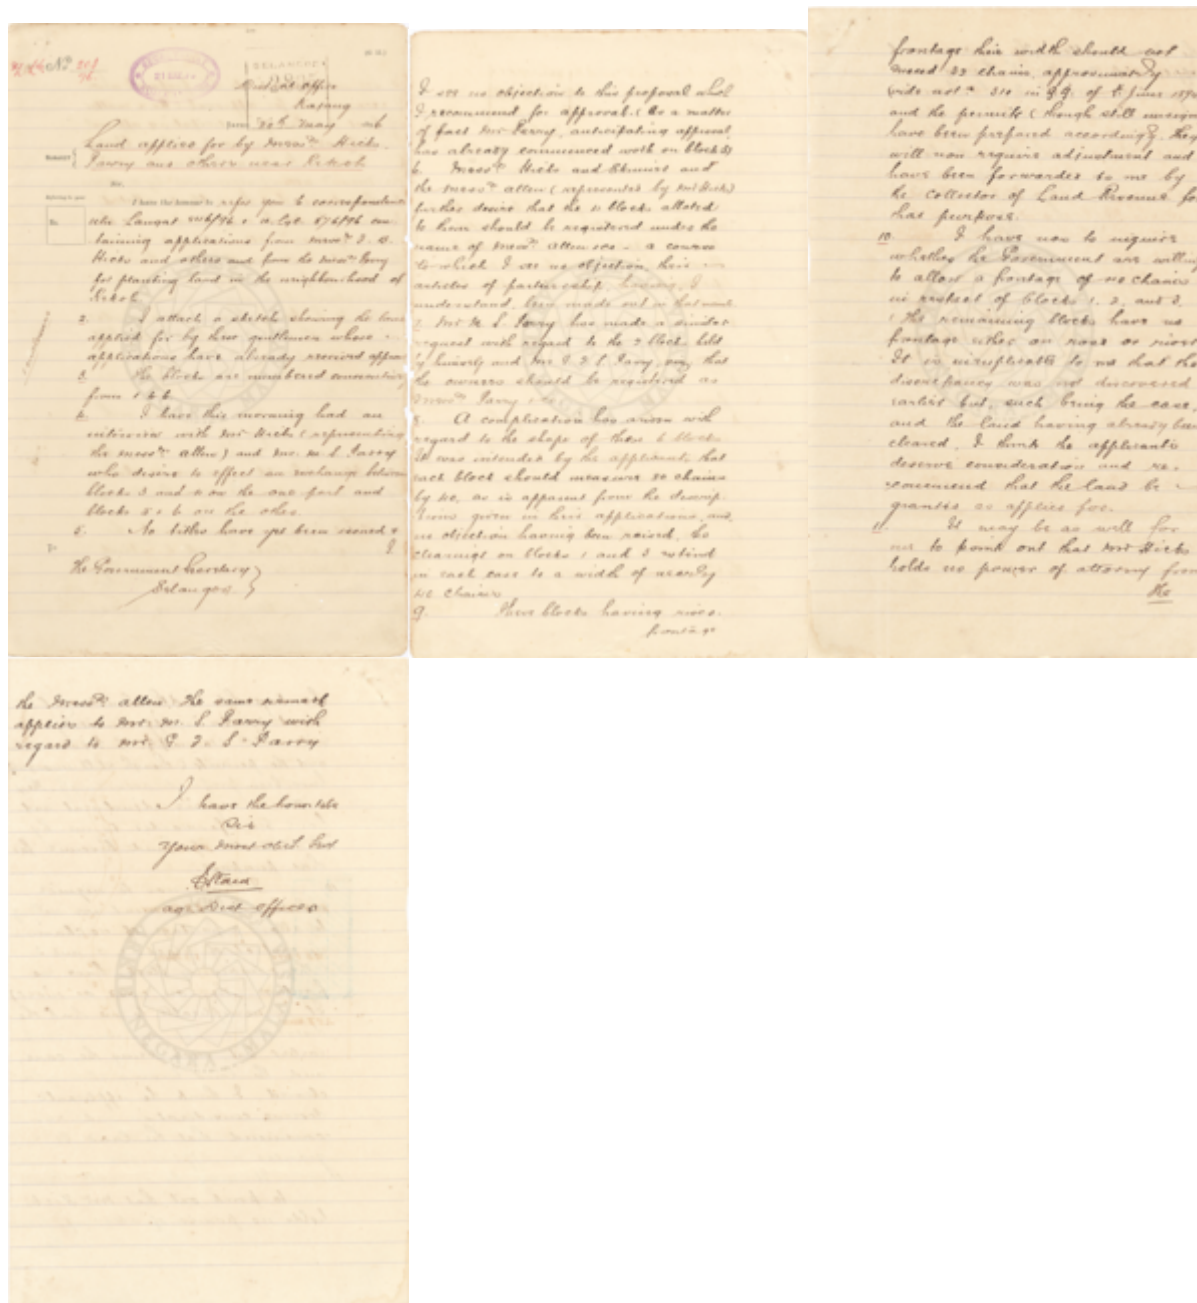 District Office
Kajang
20th May 96
Land applied for by Messrs Hicks,
Parry and others near Rekoh
Sir,
I have the honour to refer you to correspondence
Langat /96 & 576/96 con-
taining applications from Messrs
Hicks and others and from the Messrs Parry
for planting land in the neighbourhood of
Rekoh.
2. I attach a sketch shewing the land
applied for by these gentlemen whose
applications have already received approval
3. The blocks are numbered consecutively
from 1 to 6
4. I have this morning had an
interview with Mr Hicks (representing
the Messrs Allen) and Mr. M. S. Parry
who desire to effect an exchange between
blocks 3 and 4 on the one part and
blocks 5 & 6 on the other.
5. No titles have yet been issued &
I
The Government Secretary
Selangor
I see no objection to this proposal which
I recommend for approval. (As a matter
of fact Mr Parry, anticipating approval,
has already commenced work on block 3)
6. Messrs Hicks and and
the Messrs Allen (represented by Mr Hicks)
further desire that the 4 blocks allotted
to them should be registered under the
name of Messrs Allen - a course
to which I see no objection, their
articles of partnership having, I
understand, been made out in that name.
7. Mr M. S. Parry has made a similar
request with regard to the 2 blocks held
by himself and Mr S. Parry, that
the owners should be registered as
Messrs Parry
8. A complication has arisen with
regard to the shape of these 6 blocks.
It was intended by the applicants that
each block should measure 80 chains
by 40, as is apparent from the descrip-
tions given in their applications, and,
no objection having been raised, the
clearings on blocks 1 and 3 extend
in each case to a width of nearly
40 chains
9. These blocks having river
frontage
frontage their width should not
exceed 33 chains, approximately
(vide notn 310 in G.G. of 5 June
and the permits (though still unsigned
have been prepared accordingly. They
will now require adjustment and
have been forwarded to me by
the Collector of Land Revenue for
this purpose.
10. I have now to inquire
whether the Government are willing
to allow a frontage of 40 chains
in respect of blocks 1. 2. and 3.
(The remaining blocks have no
frontage either on road or river)
It is inexplicable to me that the
discrepancy was not discovered
earlier but, such being the case,
and the land having already been
cleared, I think the applicants
deserve consideration and re-
commend that the land be
granted as applied for.
11. It may be as well for
me to point out that Mr Hicks
holds no power of attorney from
the
the Messrs Allen. The same remark
applies to Mr. M. S. Parry with
regard to Mr. S. Parry
I have the honor to be
Sir
Your most obedt Servt
ag. Dist Officer
NEGARA